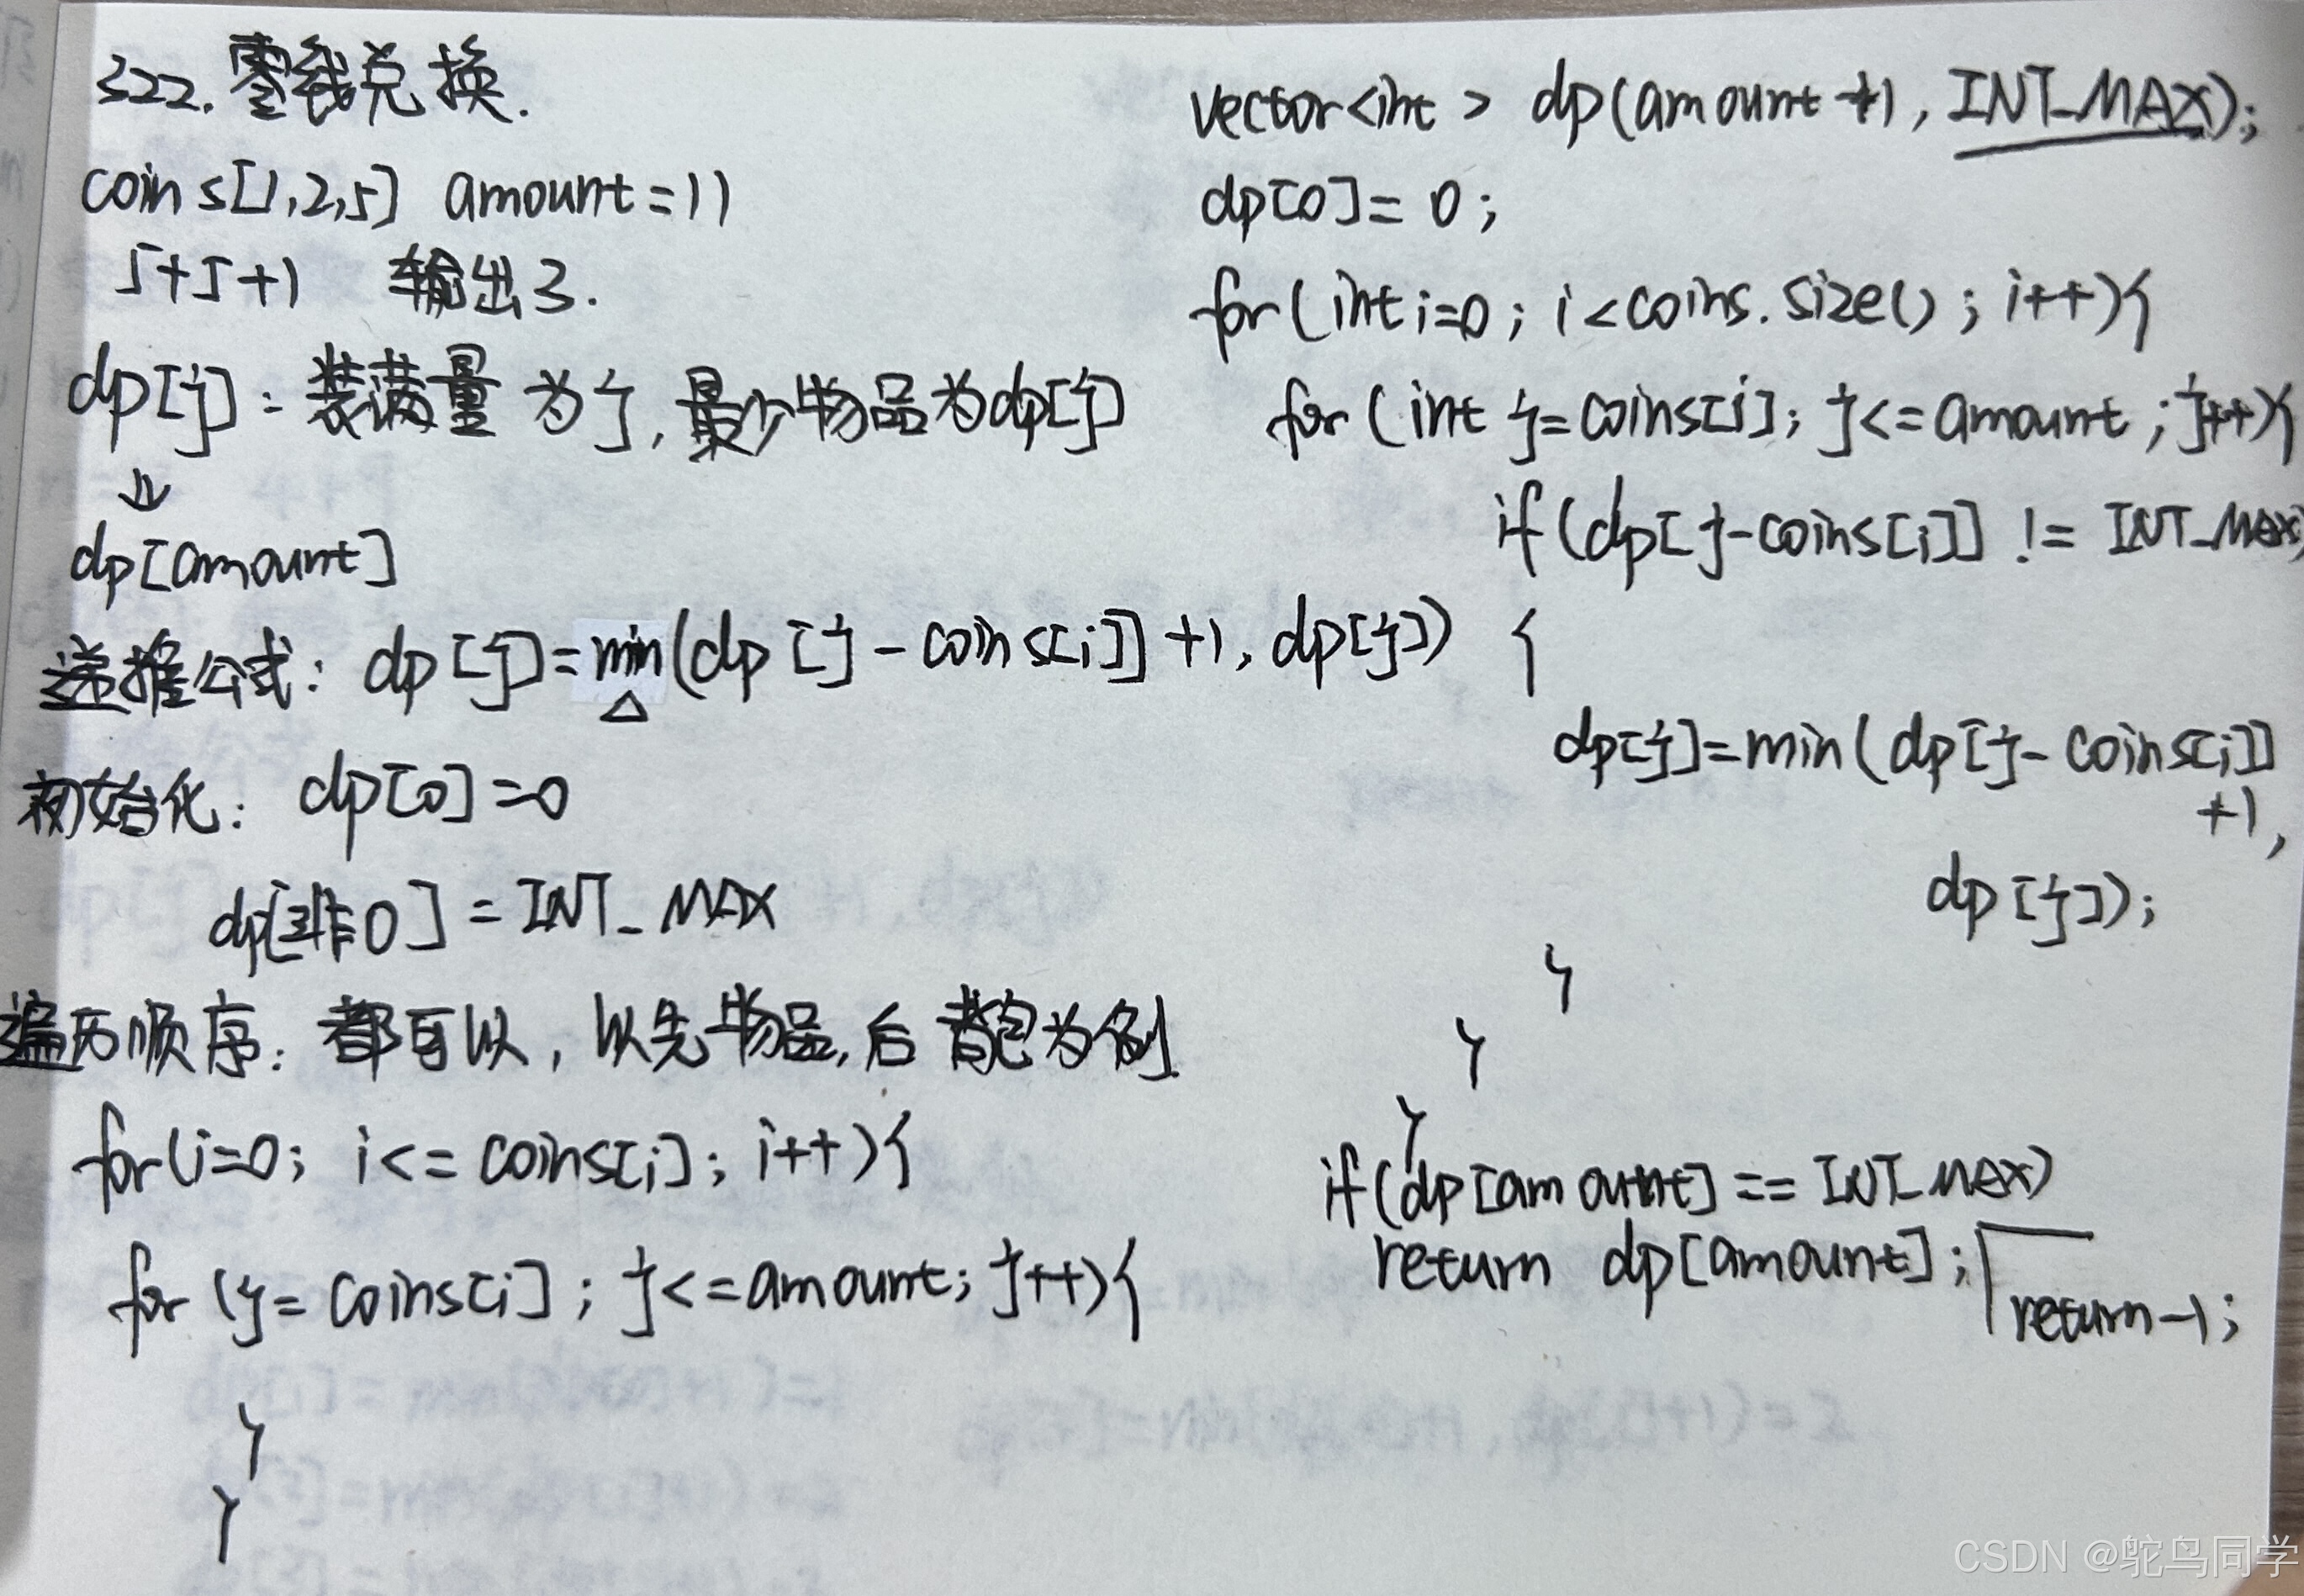 322. 零钱兑换.
coins[1,2,5] amount=11
5+5+1 输出3.
dp[j]: 装满量为j, 最少物品为dp[j]
↓
dp[amount]
递推公式: dp[j]=min(dp[j-coins[i]]+1, dp[j])
△
初始化: dp[0]=0
dp[非0]=INT_MAX
遍历顺序: 都可以, 以先物品, 后背包为例
for(i=0; i<=coins[i]; i++){
for(j=coins[i]; j<=amount; j++){
}
}
vector<int> dp(amount+1, INT_MAX);
dp[0]=0;
for(int i=0; i<coins.size(); i++){
for(int j=coins[i]; j<=amount; j++){
if(dp[j-coins[i]] != INT_MAX)
{
dp[j]=min(dp[j-coins[i]]
+1,
dp[j]);
}
}
}
if(dp[amount]==INT_MAX)
return dp[amount];
return-1;
CSDN @鸵鸟同学